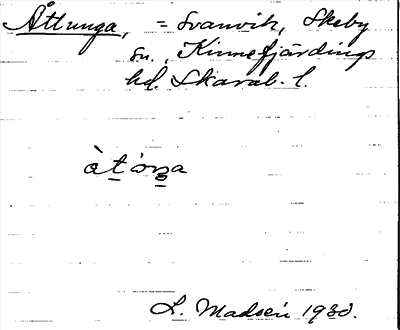 Åttunga, = Svanvik, Skeby
sn., Kinnefjärdings
hd. Skarab. l.
L. Madsén 1930.